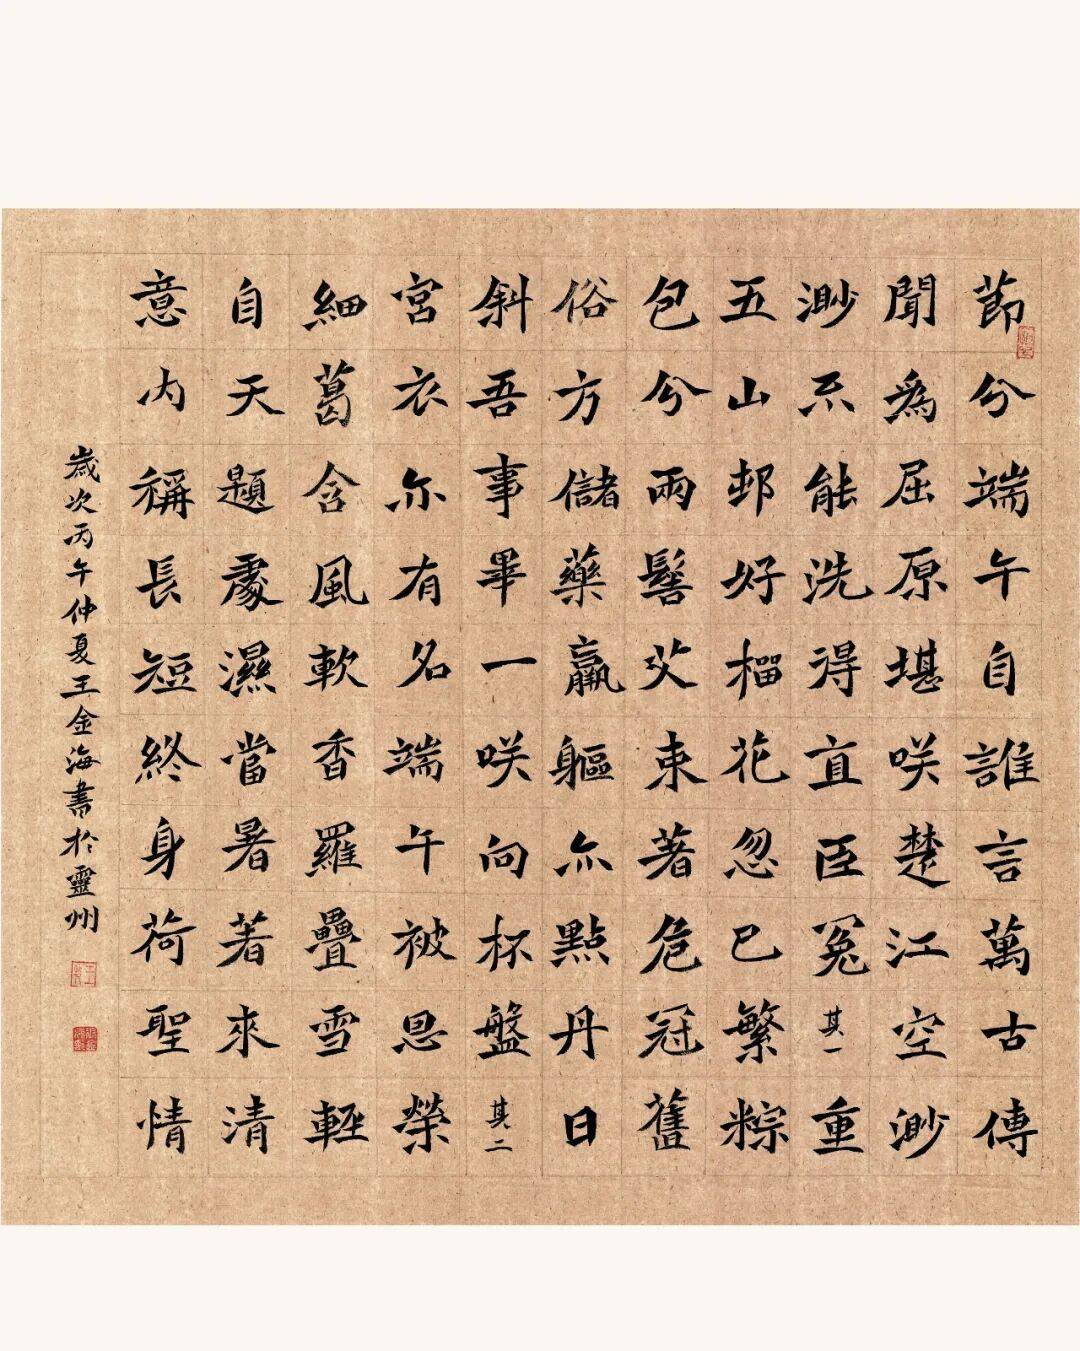 節兮端午自誰言萬古傳
聞爲屈原堪咲楚江空渺
渺不能洗得直臣冤其一重
五山邨好榴花忽已繁粽
包兮兩髻艾束著危冠舊
俗方儲藥羸軀亦點丹日
斜吾事畢一咲向杯盤其二
宮衣亦有名端午被恩榮
細葛含風軟香羅疊雪輕
自天題處濕當暑著來清
意內稱長短終身荷聖情
歲次丙午仲夏王金海書於靈州